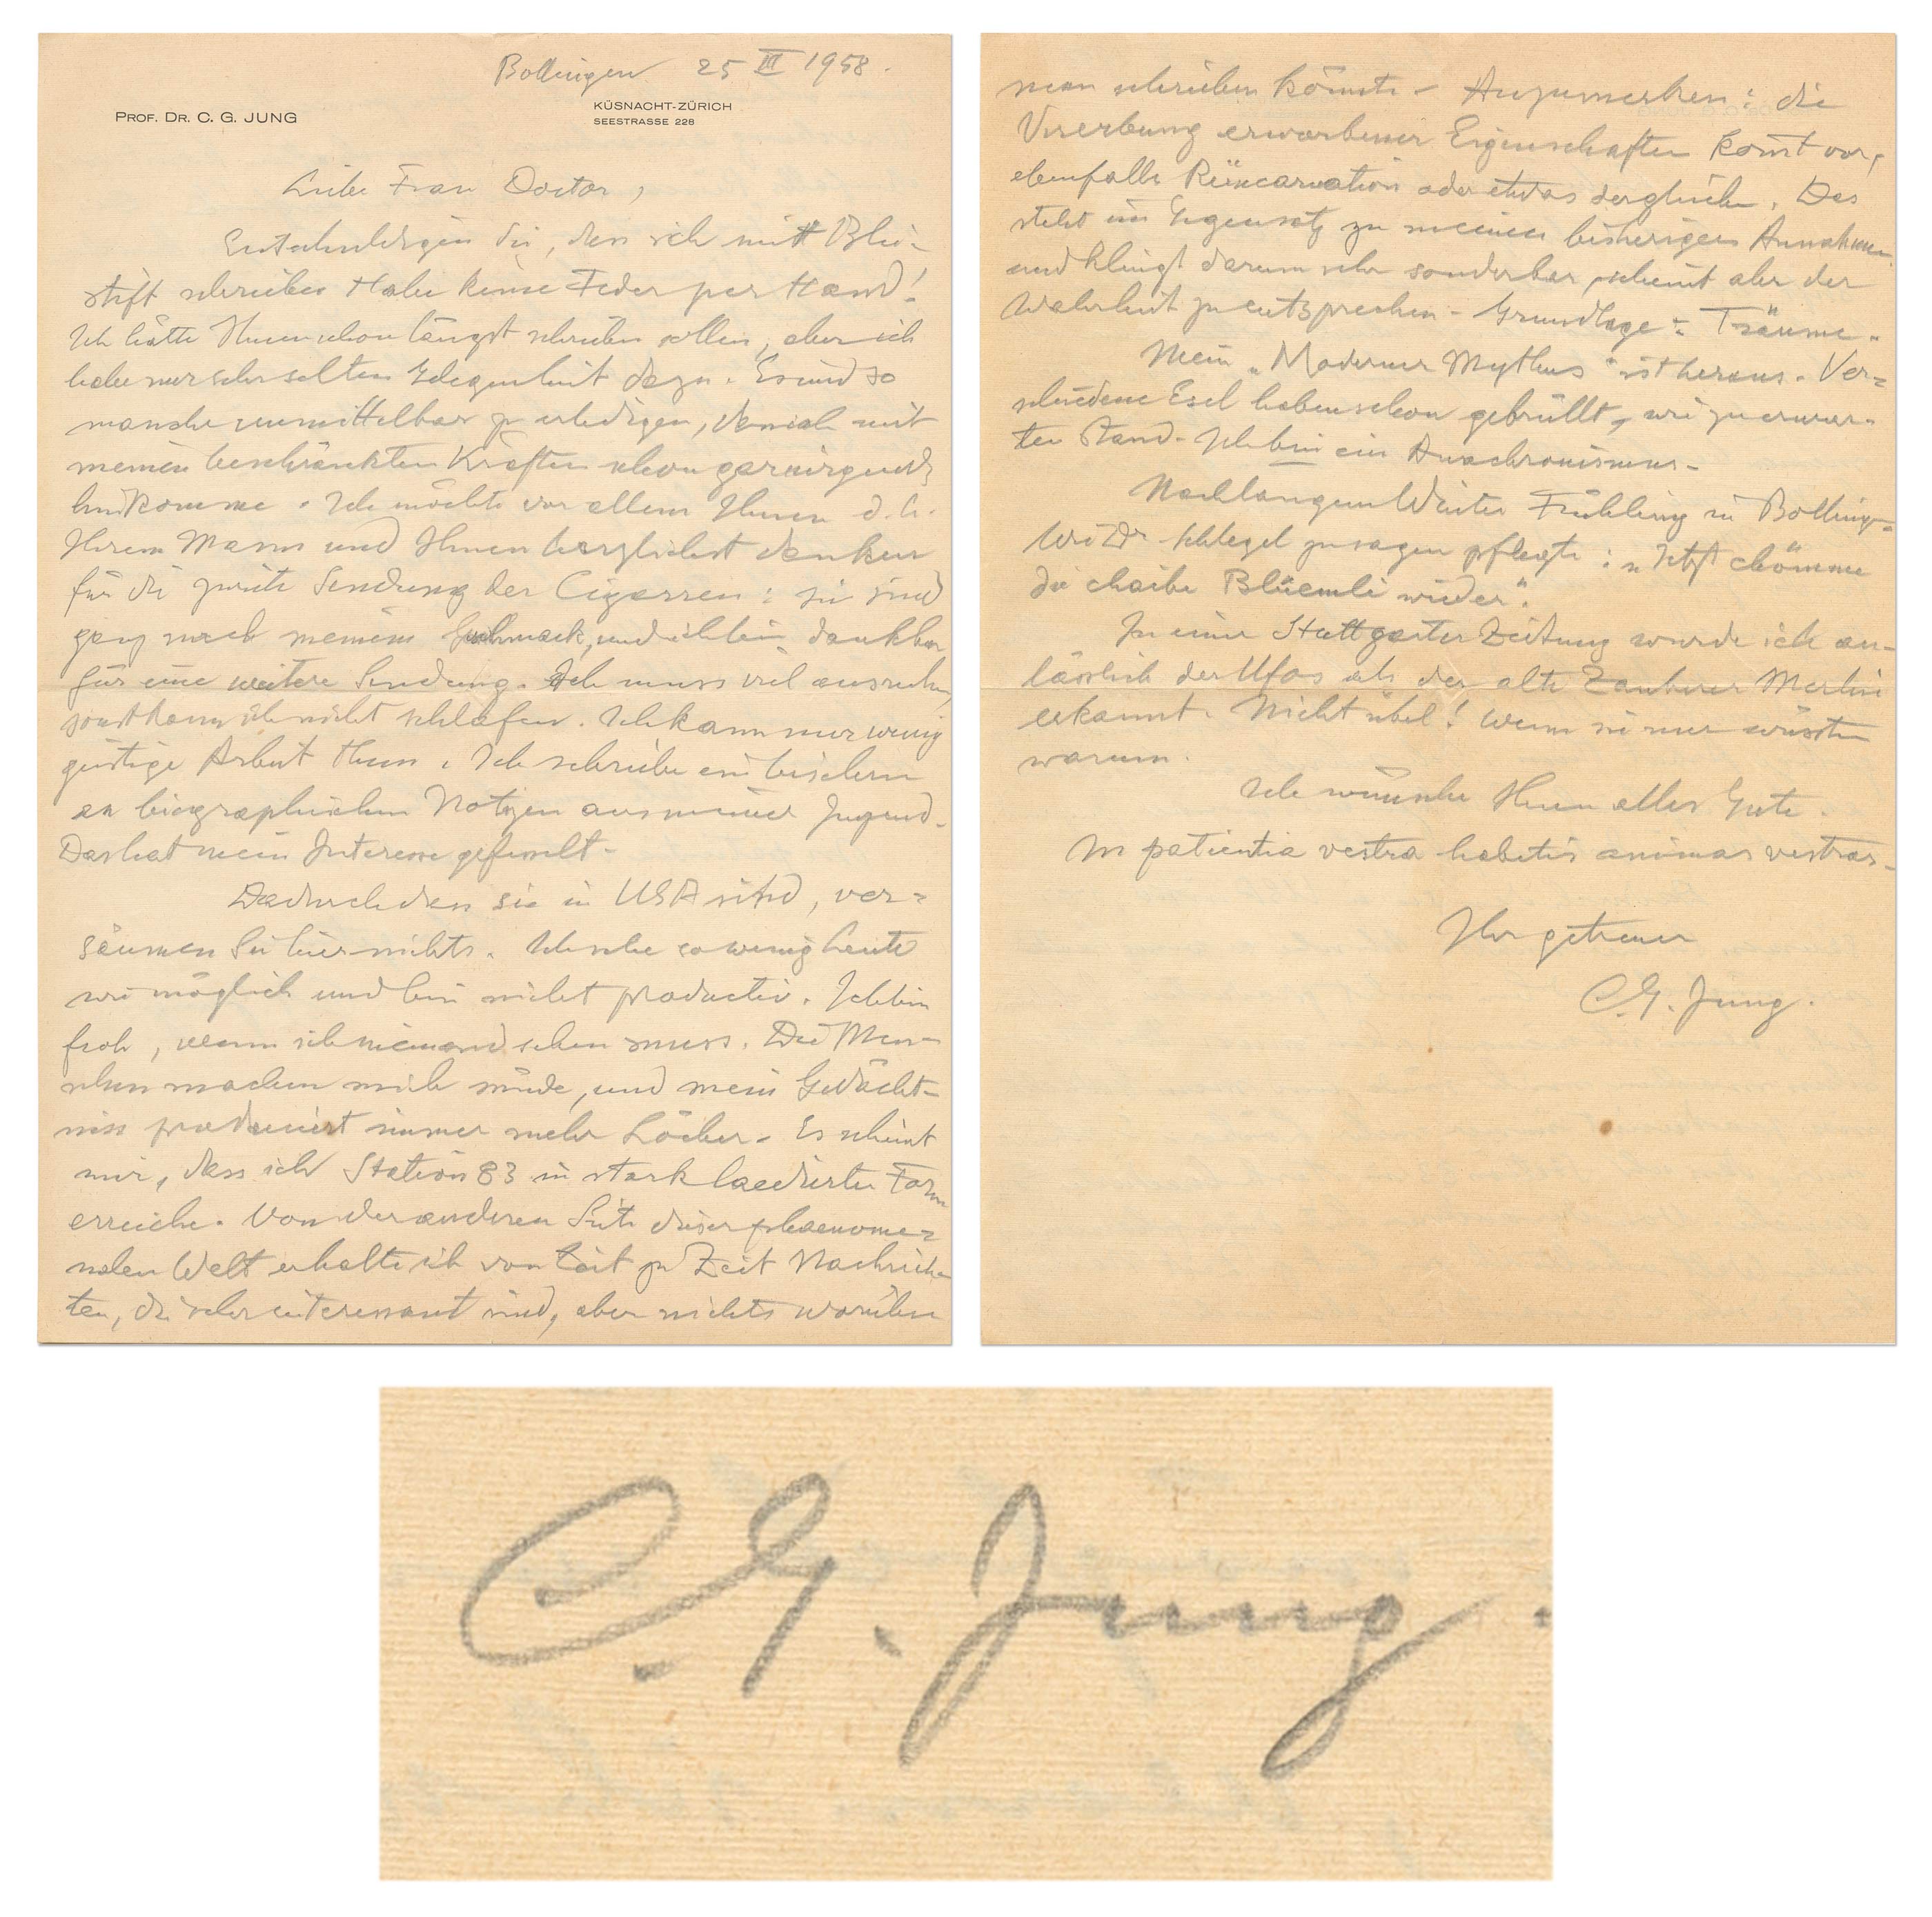 Bollingen 25 III 1958.
PROF. DR. C. G. JUNG
KÜSNACHT-ZÜRICH
SEESTRASSE 228
Liebe Frau Doctor,
Entschuldigen Sie, dass ich mitt Blei-
stift schreibe. Habe keine Feder per Hand!
Ich hätte Ihnen schon längst schreiben sollen, aber ich
habe nur sehr selten Gelegenheit dazu. Es sind so
manche unmittelbar zu erledigen, dem ich mit
meinen beschränkten Kräften schon gar nirgends
hinkomme. Ich möchte vor allem Ihnen d. h.
Ihrem Mann und Ihnen herzlichst danken
für die zweite Sendung der Cigarren: sie sind
ganz nach meinem Geschmack, und ich bin dankbar
für eine weitere Sendung. Ich muss viel ausruhen,
sonst kann ich nicht schlafen. Ich kann nur wenig
geistige Arbeit thun. Ich schreibe ein bischen
an biographischen Notizen aus meiner Jugend.
Das hat mein Interesse gefesselt-
Dadurch dass sie in USA sind, ver=
säumen Sie hier nichts. Ich sehe so wenig Leute
wie möglich und bin nicht productiv. Ich bin
froh, wenn ich niemand sehen muss. Die Men-
schen machen mich müde, und mein Gedächt-
niss produciert immer mehr Löcher- Es scheint
mir, dass ich Station 83 in stark laedierter Form
erreiche. Von der anderen Seite dieser phaenome=
nalen Welt erhalte ich von Zeit zu Zeit Nachrich-
ten, die sehr interessant sind, aber nichts worüber
man schreiben könnte- Anzumerken: die
Vererbung erworbener Eigenschaften komt vor,
ebenfalls Reïncarnation oder etwas dergleichen. Das
steht im Gegensatz zu meinen bisherigen Annahmen
und klingt darum sehr sonderbar, scheint aber der
Wahrheit zu entsprechen- Grundlage = Träume.
Mein „Moderner Mythus" ist heraus. Ver=
schiedene Esel haben schon gebrüllt, wie zu erwar-
ten stand- Ich bin ein Anachronismus-
Nach langem Winter Frühling in Bollingen
Wie Dr Schlegel zu sagen pflegte: „Jetzt chömme
die chaibe Blüemli wieder".
In einer Stuttgarter Zeitung wurde ich an-
lässlich der Ufos als der alte Zauberer Merlin
erkannt. Nicht übel! Wenn sie nur wüssten
warum.
Ich wünsche Ihnen alles Gute.
In patientia vestra habetis animas vestras-
Ihr getreuer
C. G. Jung.
C. G. Jung.